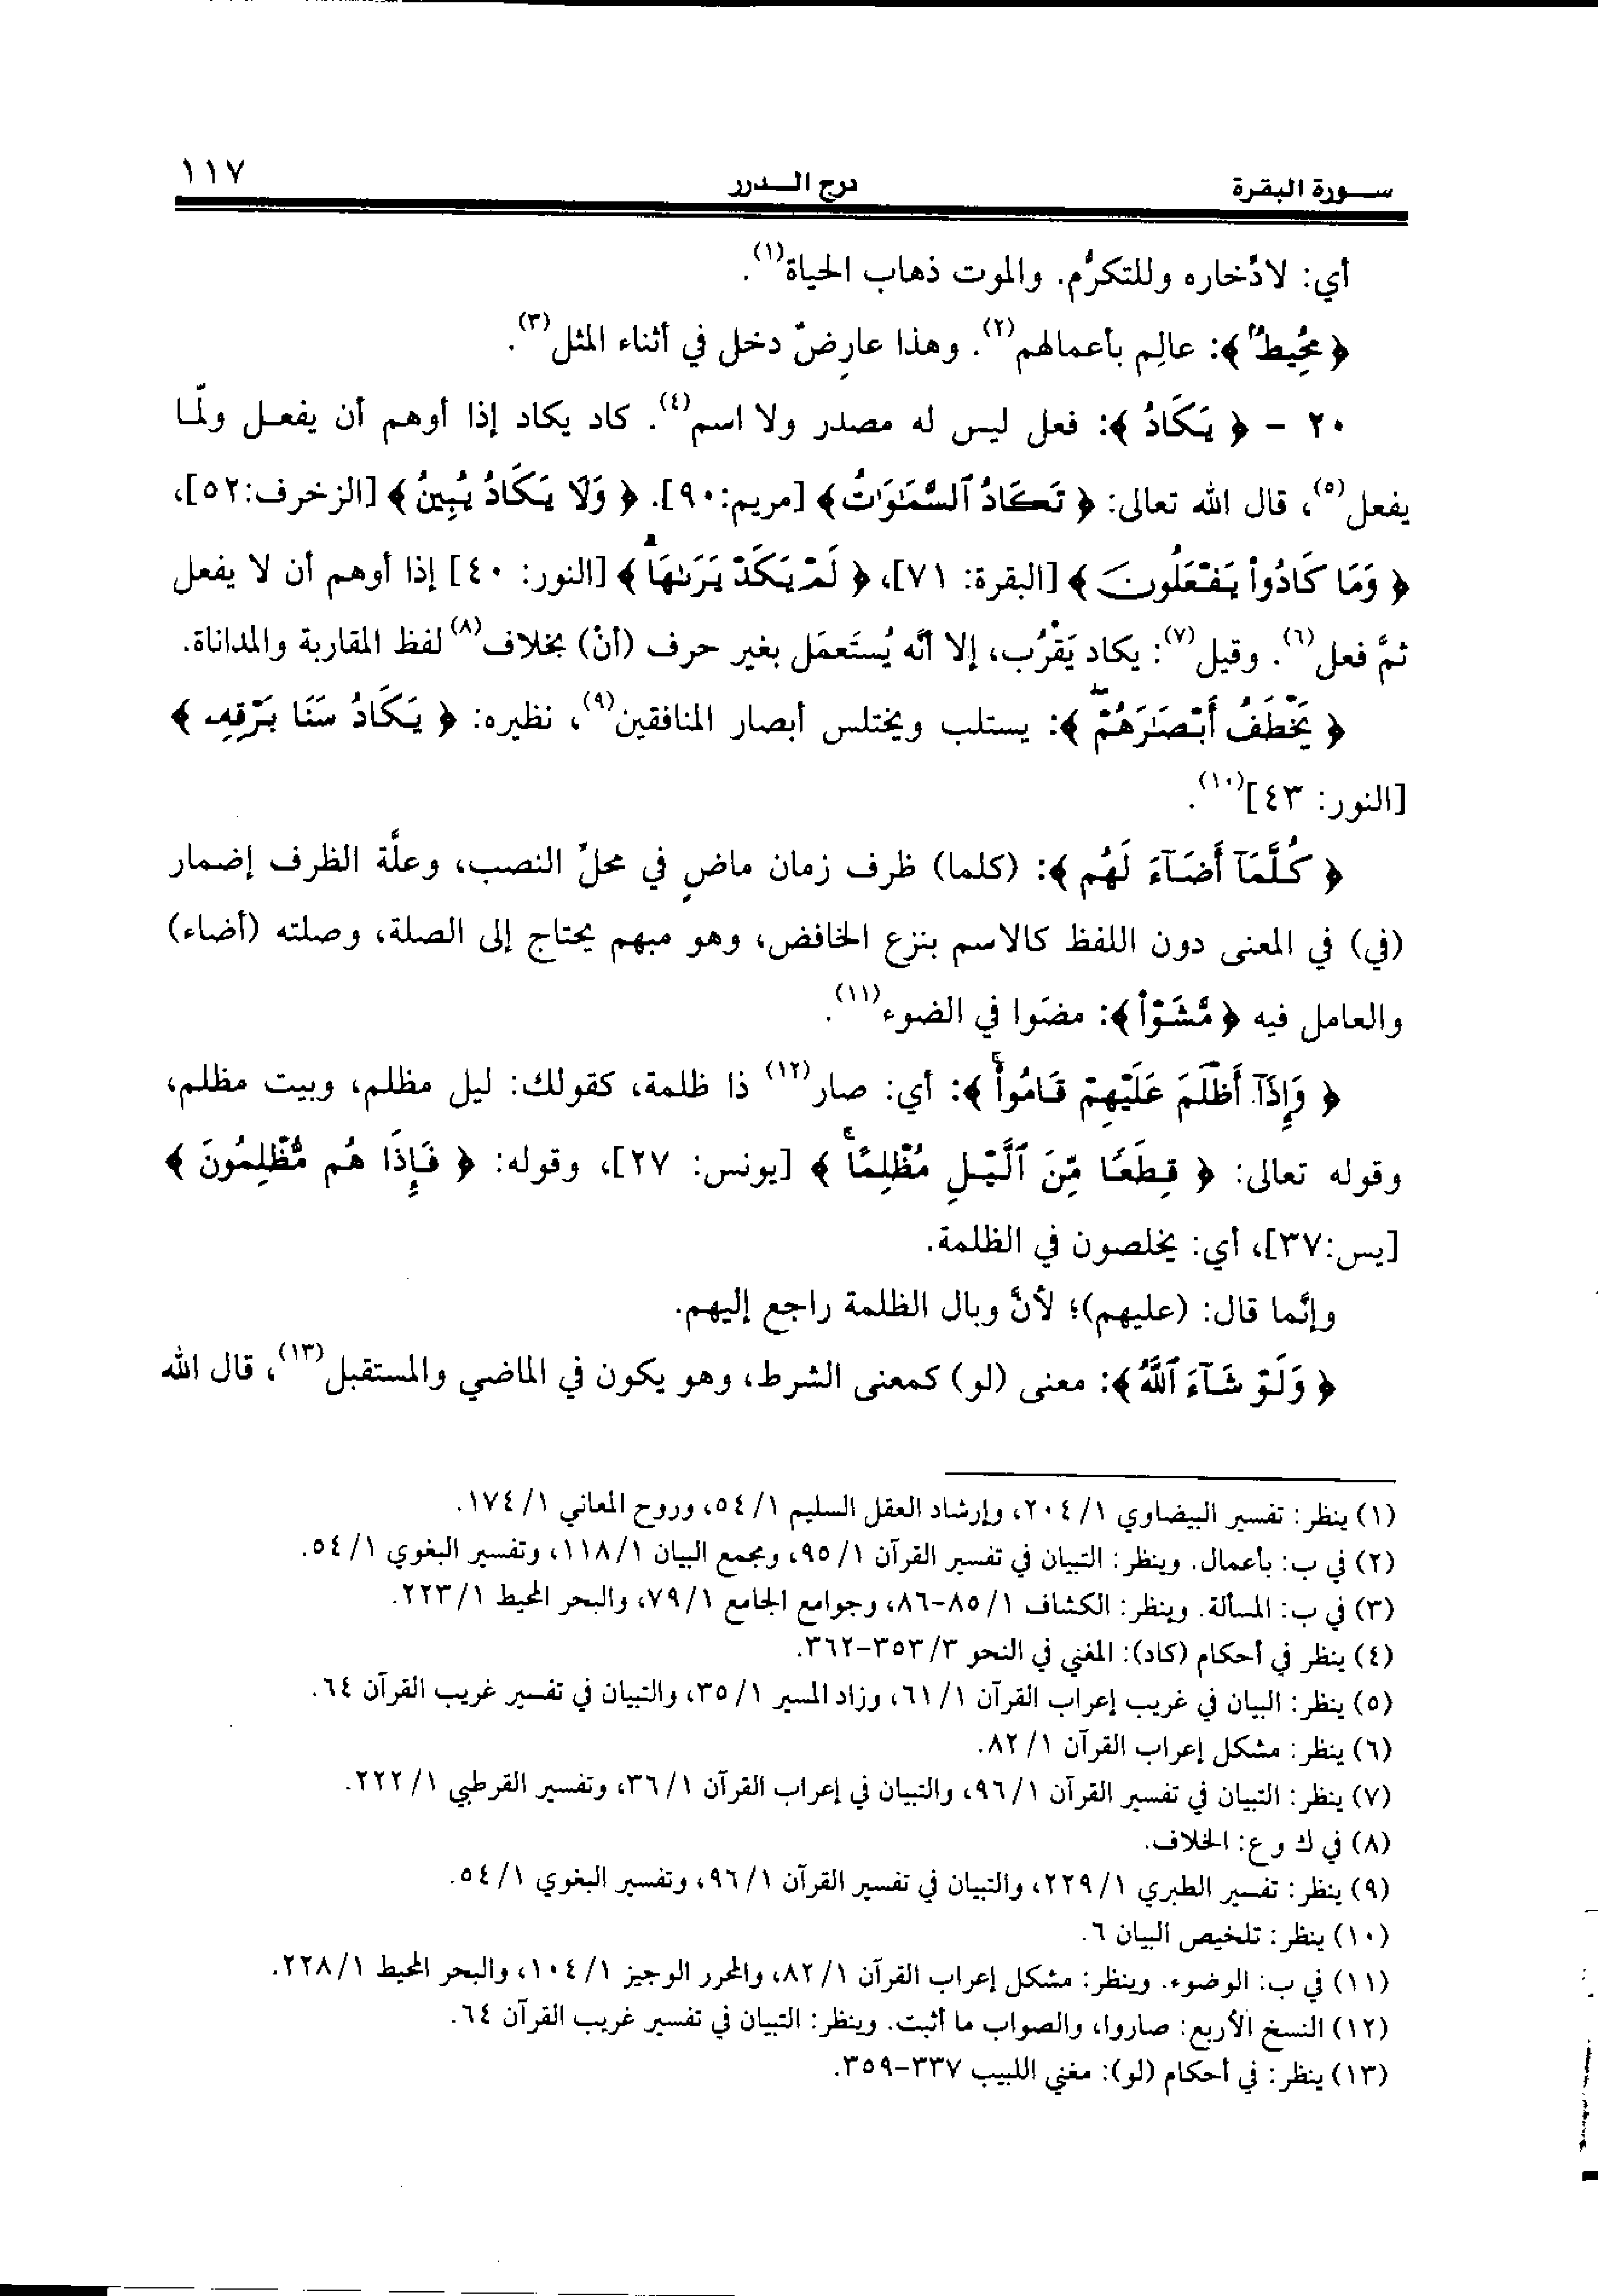 سـورة البقرة درج الـدرر ١١٧
أي: لادّخاره وللتكرّم. والموت ذهاب الحياة(١).
﴿ مُحِيطٌ ﴾: عالِم بأعمالهم(٢). وهذا عارِضٌ دخل في أثناء المثل(٣).
٢٠ - ﴿ يَكَادُ ﴾: فعل ليس له مصدر ولا اسم(٤). كاد يكاد إذا أوهم أن يفعـل ولّمـا
يفعل(٥)، قال الله تعالى: ﴿ تَكَادُ ٱلسَّمَٰوَٰتُ ﴾ [مريم:٩٠]. ﴿ وَلَا يَكَادُ يُبِينُ ﴾ [الزخرف:٥٢]،
﴿ وَمَا كَادُوا۟ يَفْعَلُونَ ﴾ [البقرة: ٧١]، ﴿ لَمْ يَكَدْ يَرَىٰهَا ﴾ [النور: ٤٠] إذا أوهم أن لا يفعل
ثمّ فعل(٦). وقيل(٧): يكاد يَقْرُب، إلا أنّه يُستَعمَل بغير حرف (أنْ) بخلاف(٨) لفظ المقاربة والمداناة.
﴿ يَخْطَفُ أَبْصَٰرَهُمْ ﴾: يستلب ويختلس أبصار المنافقين(٩)، نظيره: ﴿ يَكَادُ سَنَا بَرْقِهِۦ ﴾
[النور: ٤٣](١٠).
﴿ كُلَّمَآ أَضَآءَ لَهُم ﴾: (كلما) ظرف زمان ماضٍ في محلّ النصب، وعلّة الظرف إضمار
(في) في المعنى دون اللفظ كالاسم بنزع الخافض، وهو مبهم يحتاج إلى الصلة، وصلته (أضاء)
والعامل فيه ﴿ مَّشَوْا۟ ﴾: مضَوا في الضوء(١١).
﴿ وَإِذَآ أَظْلَمَ عَلَيْهِمْ قَامُوا۟ ﴾: أي: صار(١٢) ذا ظلمة، كقولك: ليل مظلم، وبيت مظلم،
وقوله تعالى: ﴿ قِطَعًا مِّنَ ٱلَّيْلِ مُظْلِمًا ﴾ [يونس: ٢٧]، وقوله: ﴿ فَإِذَا هُم مُّظْلِمُونَ ﴾
[يس:٣٧]، أي: يخلصون في الظلمة.
وإنّما قال: (عليهم)؛ لأنّ وبال الظلمة راجع إليهم.
﴿ وَلَوْ شَآءَ ٱللَّهُ ﴾: معنى (لو) كمعنى الشرط، وهو يكون في الماضي والمستقبل(١٣)، قال الله
(١) ينظر: تفسير البيضاوي ١/ ٢٠٤، وإرشاد العقل السليم ١/ ٥٤، وروح المعاني ١/ ١٧٤.
(٢) في ب: بأعمال. وينظر: التبيان في تفسير القرآن ١/ ٩٥، ومجمع البيان ١/ ١١٨، وتفسير البغوي ١/ ٥٤.
(٣) في ب: المسألة. وينظر: الكشاف ١/ ٨٥-٨٦، وجوامع الجامع ١/ ٧٩، والبحر المحيط ١/ ٢٢٣.
(٤) ينظر في أحكام (كاد): المغني في النحو ٣/ ٣٥٣-٣٦٢.
(٥) ينظر: البيان في غريب إعراب القرآن ١/ ٦١، وزاد المسير ١/ ٣٥، والتبيان في تفسير غريب القرآن ٦٤.
(٦) ينظر: مشكل إعراب القرآن ١/ ٨٢.
(٧) ينظر: التبيان في تفسير القرآن ١/ ٩٦، والتبيان في إعراب القرآن ١/ ٣٦، وتفسير القرطبي ١/ ٢٢٢.
(٨) في ك و ع: الخلاف.
(٩) ينظر: تفسير الطبري ١/ ٢٢٩، والتبيان في تفسير القرآن ١/ ٩٦، وتفسير البغوي ١/ ٥٤.
(١٠) ينظر: تلخيص البيان ٦.
(١١) في ب: الوضوء. وينظر: مشكل إعراب القرآن ١/ ٨٢، والمحرر الوجيز ١/ ١٠٤، والبحر المحيط ١/ ٢٢٨.
(١٢) النسخ الأربع: صاروا، والصواب ما أثبت. وينظر: التبيان في تفسير غريب القرآن ٦٤.
(١٣) ينظر: في أحكام (لو): مغني اللبيب ٣٣٧-٣٥٩.